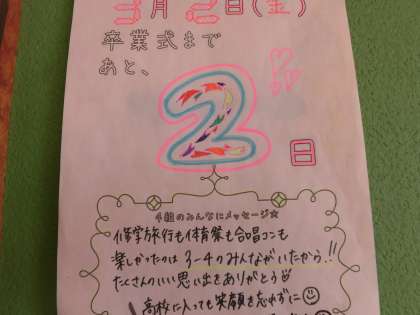 3月2日(金)
卒業式まで
あと、
2
日
4組のみんなにメッセージ☆
修学旅行も体育祭も合唱コンも
楽しかったのは3-4のみんながいたから!!
たくさんのいい思い出をありがとう
高校に入っても笑顔を忘れずに☺